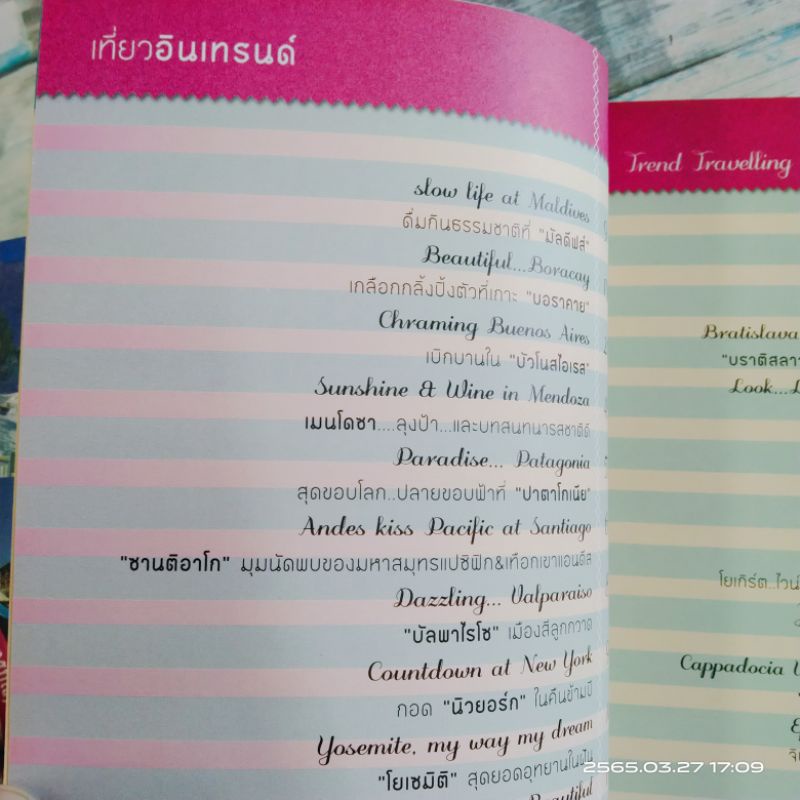 เที่ยวอินเทรนด์
slow life at Maldives
ดื่มกินธรรมชาติที่ "มัลดีฟส์"
Beautiful...Boracay
เกลือกกลิ้งปิ้งตัวที่เกาะ "บอราคาย"
Chraming Buenos Aires
เบิกบานใน "บัวโนสไอเรส"
Sunshine & Wine in Mendoza
เมนโดซา....ลุงป้า...และบทสนทนารสชาติดี
Paradise... Patagonia
สุดขอบโลก..ปลายขอบฟ้าที่ "ปาตาโกเนีย"
Andes kiss Pacific at Santiago
"ซานติอาโก" มุมนัดพบของมหาสมุทรแปซิฟิก&เทือกเขาแอนดีส
Dazzling... Valparaiso
"บัลพาไรโซ" เมืองสีลูกกวาด
Countdown at New York
กอด "นิวยอร์ก" ในคืนข้ามปี
Yosemite, my way my dream
"โยเซมิตี" สุดยอดอุทยานในฝัน
Beautiful
Trend Travelling
Bratislava
"บราติสลาวา
Look...
โยเกิร์ต..ไวน์
Cappadocia
2565.03.27 17:09